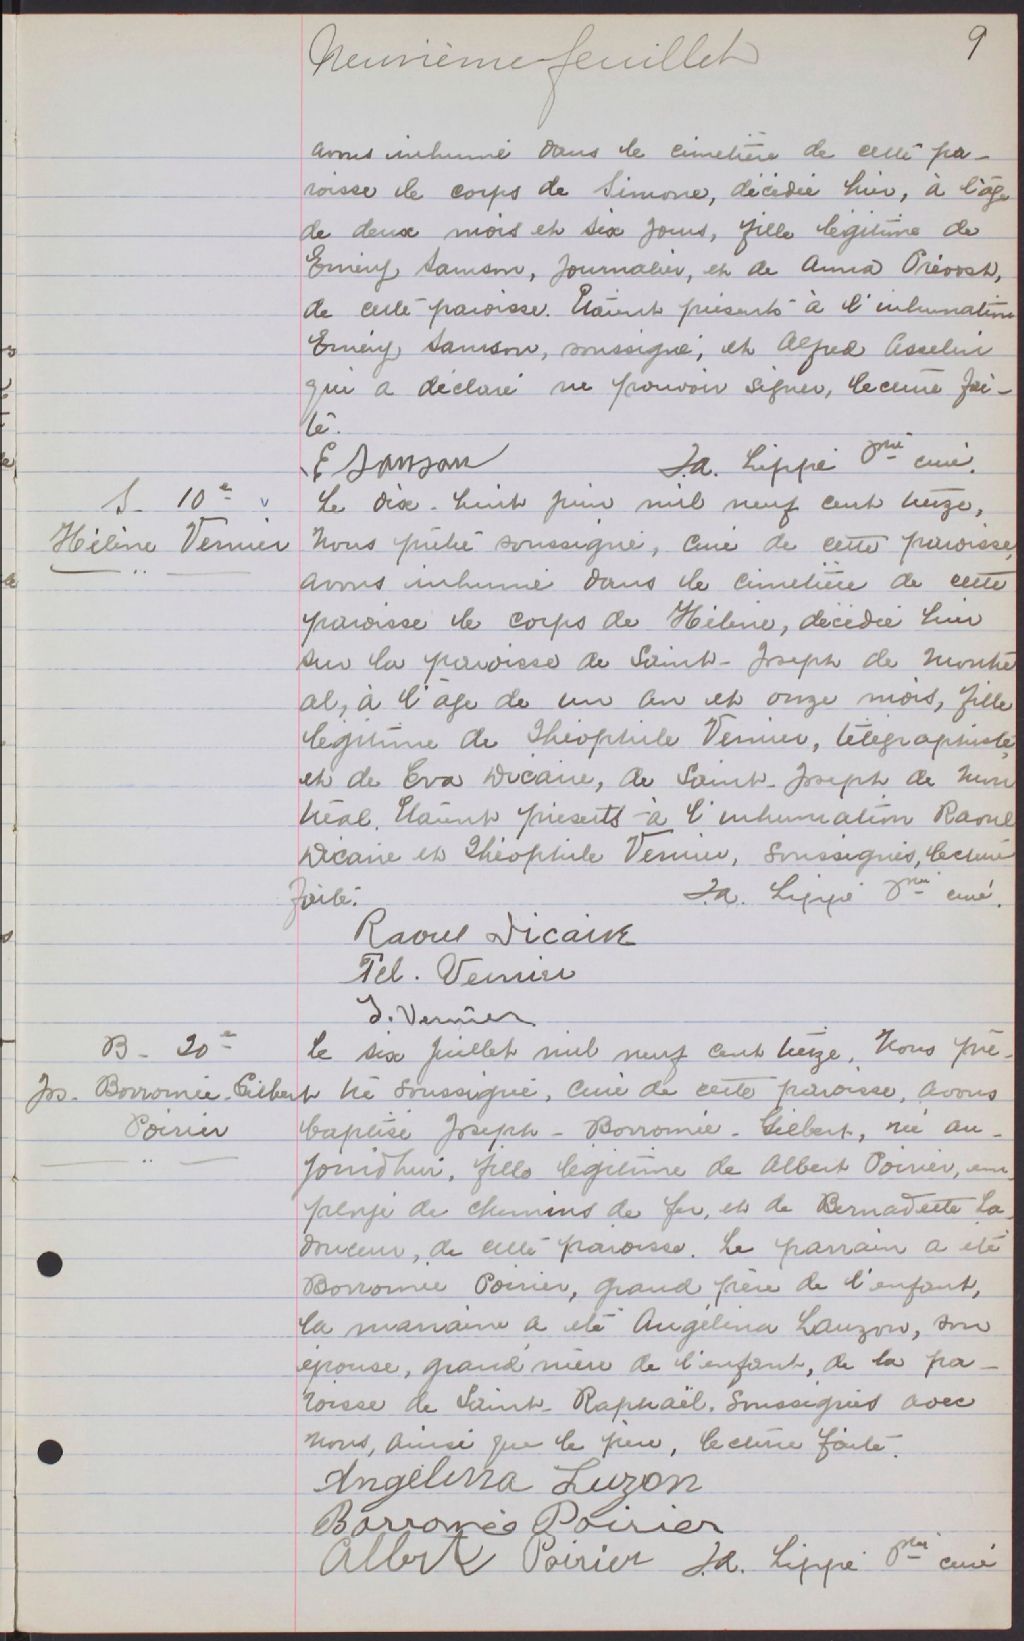 9
Neuvième feuillet
avons inhumé dans le cimetière de cette pa-
roisse le corps de Simone, décédée hier, à l'âge
de deux mois et six jours, fille légitime de
Emery Samson, journalier, et de Anna Prévost,
de cette paroisse. Etaient présents à l'inhumation
Emery Samson, soussigné, et Alfred Asselin
qui a déclaré ne pouvoir signer, lecture fai-
te.
E Samson J.A. Lippé ptre curé.
S - 10e
Hélène Vernier
Le dix-huit juin mil neuf cent treize,
Nous prêtre soussigné, curé de cette paroisse,
avons inhumé dans le cimetière de cette
paroisse le corps de Hélène, décédée hier
sur la paroisse de Saint-Joseph de Montré
al, à l'âge de un an et onze mois, fille
légitime de Théophile Vernier, télégraphiste,
et de Eva Dicaire, de Saint-Joseph de Mon
tréal. Etaient présents à l'inhumation Raoul
Dicaire et Théophile Vernier, soussignés, lecture
faite. J.A. Lippé ptre curé.
Raoul Dicaire
Tel. Vernier
J. Vernier
B - 20e
Jos. Borromée-Gilbert
Poirier
Le six juillet mil neuf cent treize, Nous prê-
tre soussigné, curé de cette paroisse, avons
baptisé Joseph-Borromée-Gilbert, né au-
jourd'hui, fills légitime de Albert Poirier, em
ployé de chemins de fer, et de Bernadette La-
douceur, de cette paroisse. Le parrain a été
Borromée Poirier, grand père de l'enfant,
la marraine a été Angélina Lauzon, son
épouse, grand'mère de l'enfant, de la pa-
roisse de Saint-Raphaël. Soussignés avec
nous, ainsi que le père, lecture faite.
Angelina Luzon
Borromée Poirier
Albert Poirier J.A. Lippé ptre curé